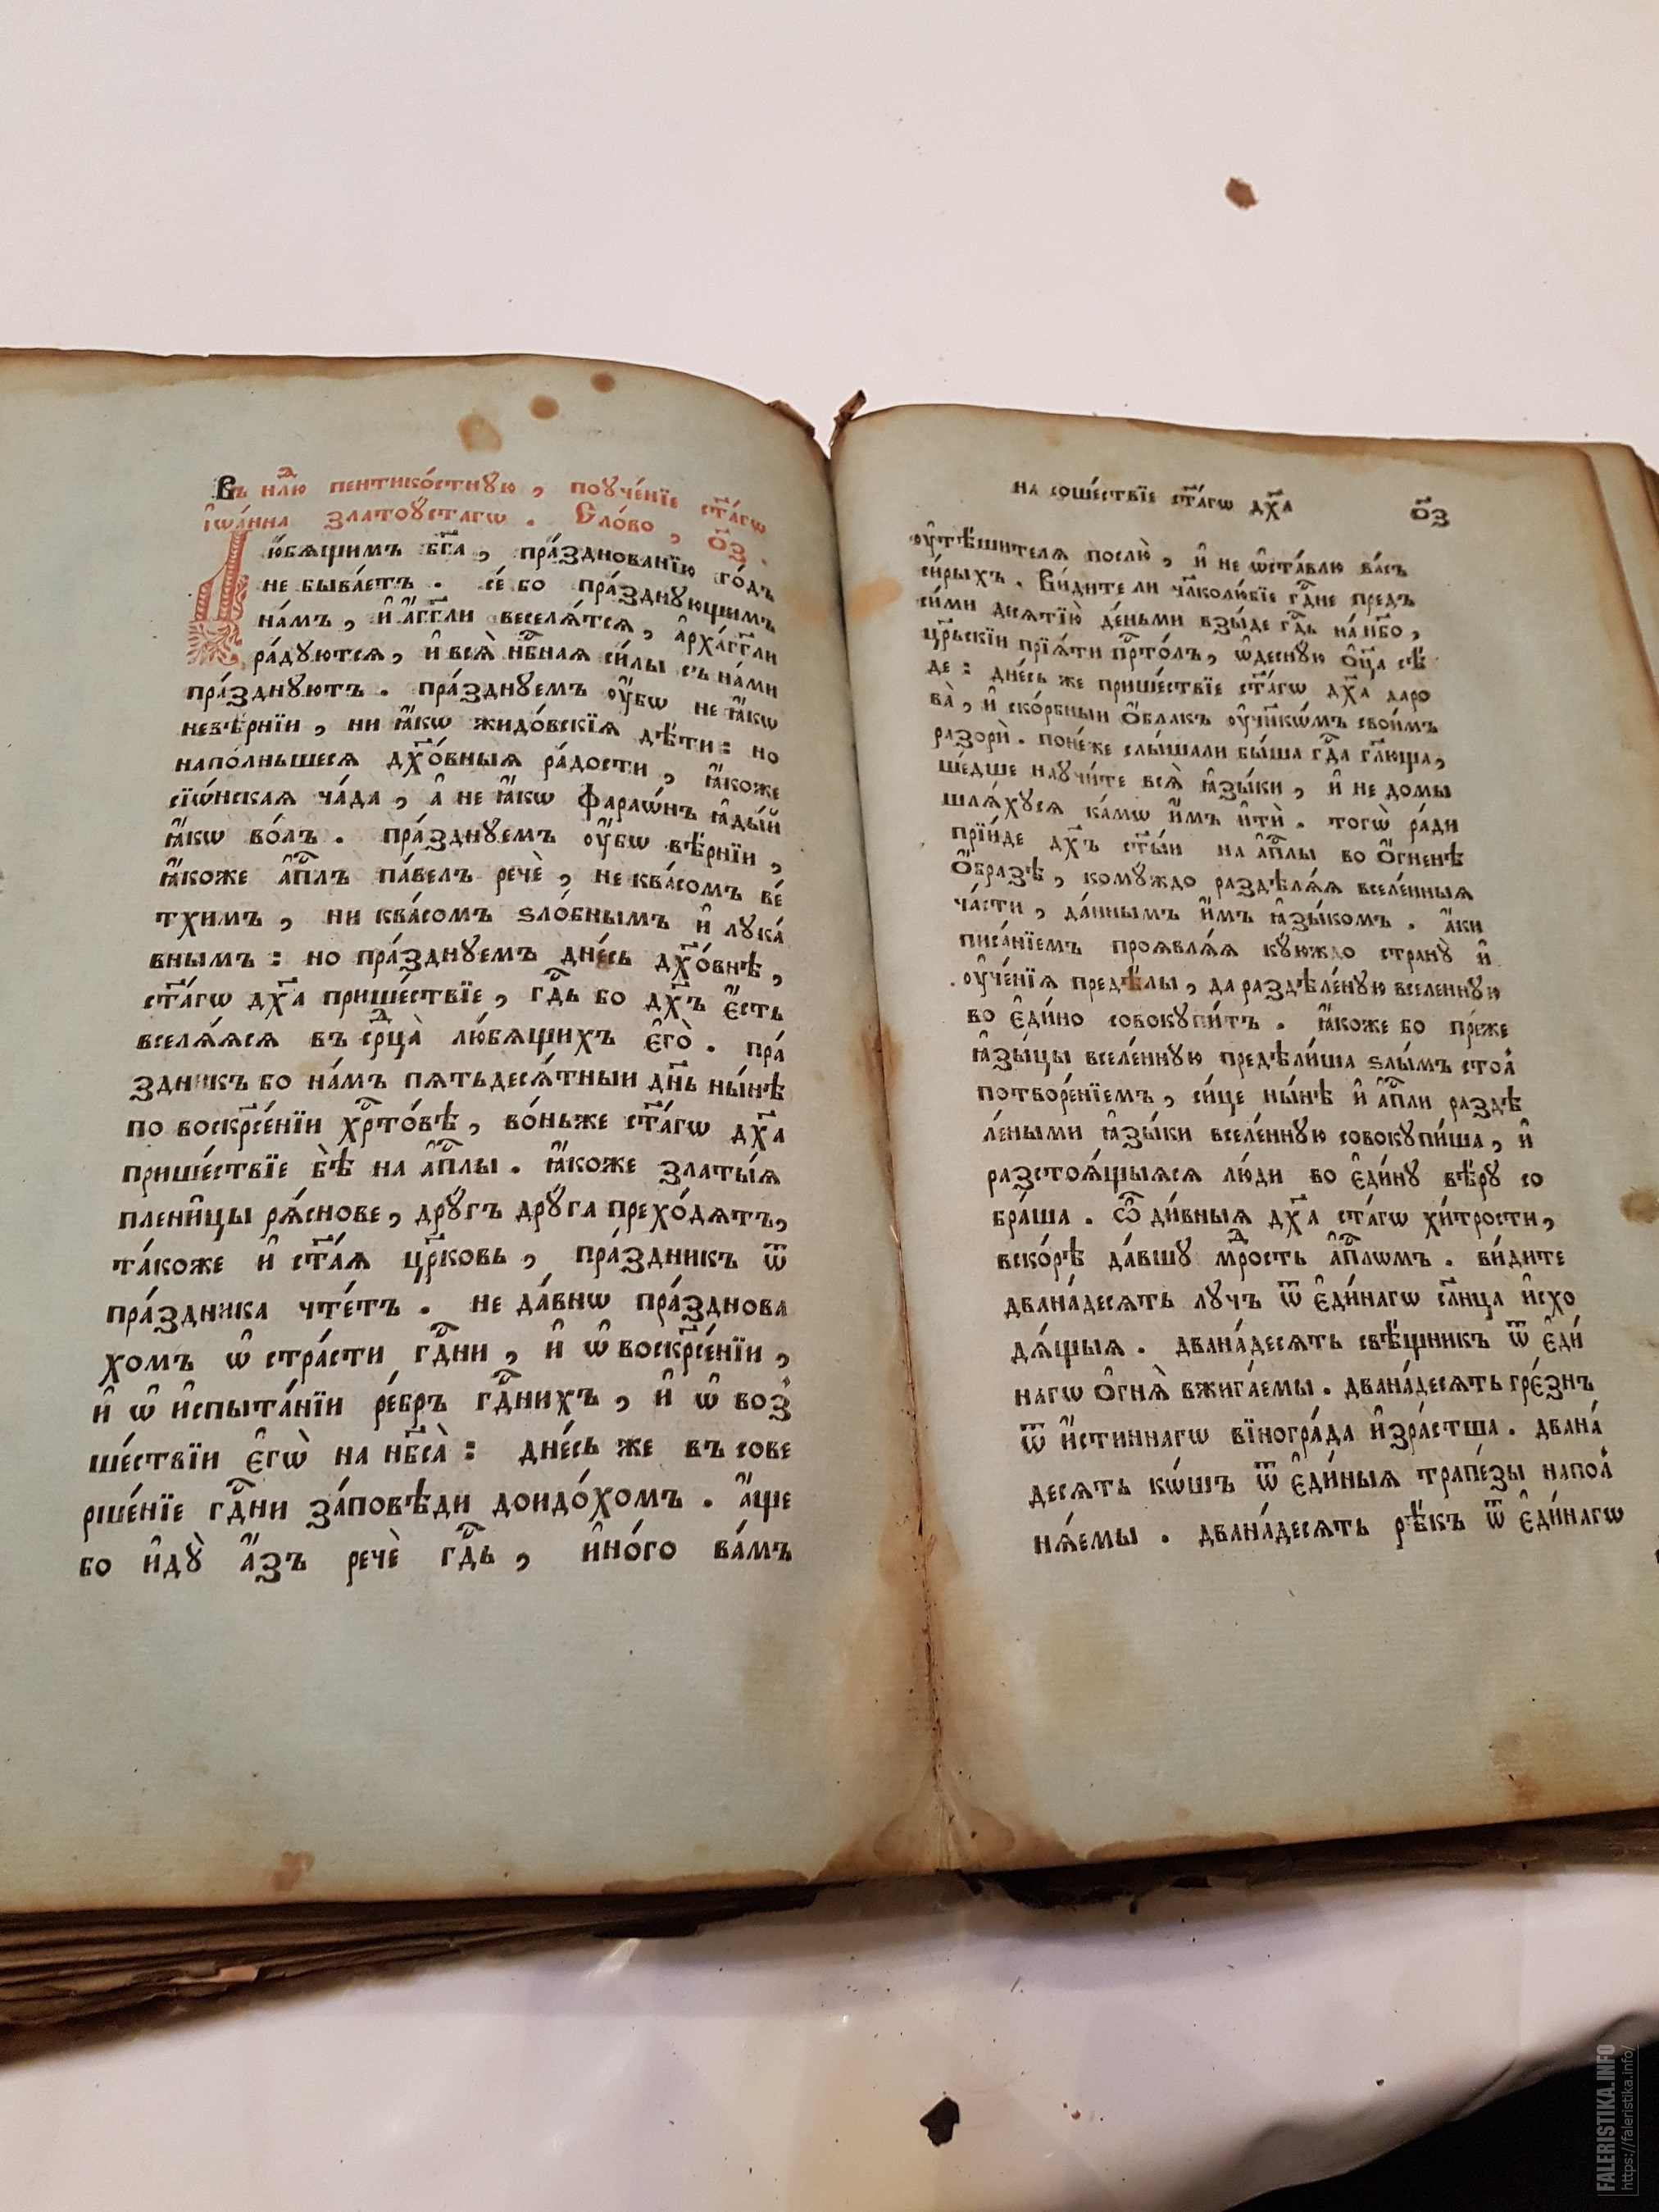 Въ нⷣлю пентико́стнꙋю , поꙋче́нїе ст҃а́гѡ
і҆ѡа́нна златоꙋ́стагѡ . Сло́во , о҃з .
Лю́бѧщимъ бг҃а , пра́зднованїю го́дъ
не быва́етъ . се́ бо пра́зднꙋющимъ
на́мъ , и҆ а҆́гг҃ли веселѧ́тсѧ , а҆рха́гг҃ли
ра́дꙋютсѧ , и҆ всѧ̀ нб҃наѧ си́лы съ на́ми
пра́зднꙋютъ . пра́зднꙋемъ ᲂу҆́бѡ не ꙗ҆́кѡ
невѣ́рнїи , ни ꙗ҆́кѡ жидо́вскїѧ дѣ́ти : но
напо́лньшесѧ дх҃о́вныѧ ра́дости , ꙗ҆́коже
сїѡ́нскаѧ ча́да , а҆ не ꙗ҆́кѡ фараѡ́нъ ꙗ҆ды́й
ꙗ҆́кѡ во́лъ . пра́зднꙋемъ ᲂу҆́бѡ вѣ́рнїи ,
ꙗ҆́коже а҆пⷭ҇лъ па́велъ речѐ , не ква́сомъ ве́
тхимъ , ни ква́сомъ ѕло́бнымъ и҆ лꙋка́
внымъ : но пра́зднꙋемъ дне́сь дх҃о́внѣ ,
ст҃а́гѡ дх҃а прише́ствїе , гдⷭ҇ь бо дх҃ъ є҆́сть
вселѧ́ѧсѧ въ срⷣцà лю́бѧщихъ є҆гѡ̀ . пра́
здникъ бо на́мъ пѧтьдесѧ́тныи дн҃ь ны́нѣ
по воскрⷭ҇е́нїи хрⷭ҇то́вѣ , во́ньже ст҃а́гѡ дх҃а
прише́ствїе бѣ̀ на а҆пⷭ҇лы . ꙗ҆́коже златы́ѧ
плени́цы рѧ́снове , дрꙋ́гъ дрꙋ́га прехо́дѧтъ ,
та́коже и҆ ст҃а́ѧ цр҃ковь , пра́здникъ ѿ
пра́здника чте́тъ . не да́внѡ пра́зднова
хомъ ѡ҆ стра́сти гдⷭ҇ни , и҆ ѡ҆ воскрⷭ҇е́нїи ,
и҆ ѡ҆ и҆спыта́нїи ре́бръ гдⷭ҇нихъ , и҆ ѡ҆ воз̾
ше́ствїи є҆гѡ̀ на нб҃сà : дне́сь же въ сове
рше́нїе гдⷭ҇ни за́повѣди доидо́хомъ . а҆́ще
бо и҆дꙋ̀ а҆́зъ речѐ гдⷭ҇ь , и҆но́го ва́мъ
на соше́ствїе ст҃а́гѡ дх҃а о҃з
ᲂу҆тѣ́шителѧ послю̀ , и҆ не ѡ҆ста́влю ва́съ
си́рыхъ . Ви́дите ли чл҃колю́бїе гдⷭ҇не предъ
си́ми десѧтїю̀ де́ньми взы́де гдⷭ҇ь на́ нб҃о ,
црⷭ҇ьскїи прїѧ́ти прⷭ҇то́лъ , ѡ҆деснꙋ́ю ѻ҆ц҃а сѣ́
де : дне́сь же прише́ствїе ст҃а́гѡ дх҃а даро
вà , и҆ ско́рбныи ѻ҆́блакъ ᲂу҆чн҃кѡ́мъ свои́мъ
разорѝ . поне́же слы́шали бы́ша гдⷭ҇а гл҃юща ,
ше́дше наꙋчи́те всѧ̀ ꙗ҆зы́ки , и҆ не домы
шлѧ́хꙋсѧ ка́мѡ и҆́мъ и҆тѝ . тогѡ̀ ра́ди
прїи́де дх҃ъ ст҃ы́и на а҆пⷭ҇лы во ѻ҆́гненѣ
ѻ҆́бразѣ , комꙋ́ждо раздѣлѧ́ѧ вселе́нныѧ
ча́сти , да́ннымъ и҆́мъ ꙗ҆зы́комъ . а҆́ки
писа́нїемъ проѧвлѧ́ѧ кꙋ́южⷣо странꙋ̀ и҆
ᲂу҆че́нїѧ предѣ́лы , да раздѣле́нꙋю вселеннꙋю
во є҆ди́но совокꙋпи́тъ . ꙗ҆́коже бо пре́же
ꙗ҆зы́цы вселе́ннꙋю предѣли́ша ѕлы́мъ стол̾
потворе́нїемъ , си́це ны́нѣ и҆ а҆пⷭ҇ли раздѣ
ле́ными ꙗ҆зы́ки вселе́ннꙋю совокꙋпи́ша , и҆
разстоѧ́щыѧсѧ лю́ди во є҆ди́нꙋ вѣ́рꙋ со
бра́ша . Ѽ ди́вныѧ дх҃а ст҃а́гѡ хи́трости ,
вско́рѣ да́вшꙋ мⷣрость а҆пⷭ҇лѡмъ . ви́дите
двана́десѧть лꙋчъ ѿ є҆ди́нагѡ сл҃нца и҆схо
дѧ́щыѧ . двана́десѧть свѣ́щникъ ѿ є҆ди́
нагѡ ѻ҆гнѧ̀ вжига́емы . двана́десѧть гре́знъ
ѿ и҆́стиннагѡ вїногра́да и҆зра́стша . двана́
десѧть кѡ́шъ ѿ є҆ди́ныѧ трапе́зы напол̾
нѧ́емы . двана́десѧть рѣ́къ ѿ є҆ди́нагѡ
FALERISTIKA.INFO
https://faleristika.info/